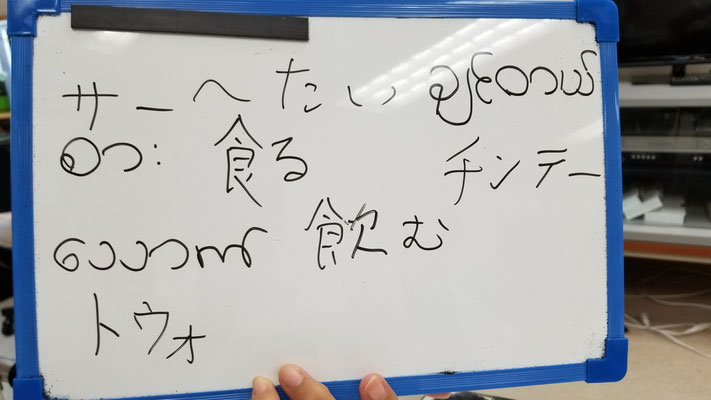 サー 〜たい ချင်တယ်
စား 食る チンテー
သောက် 飲む
トウォ